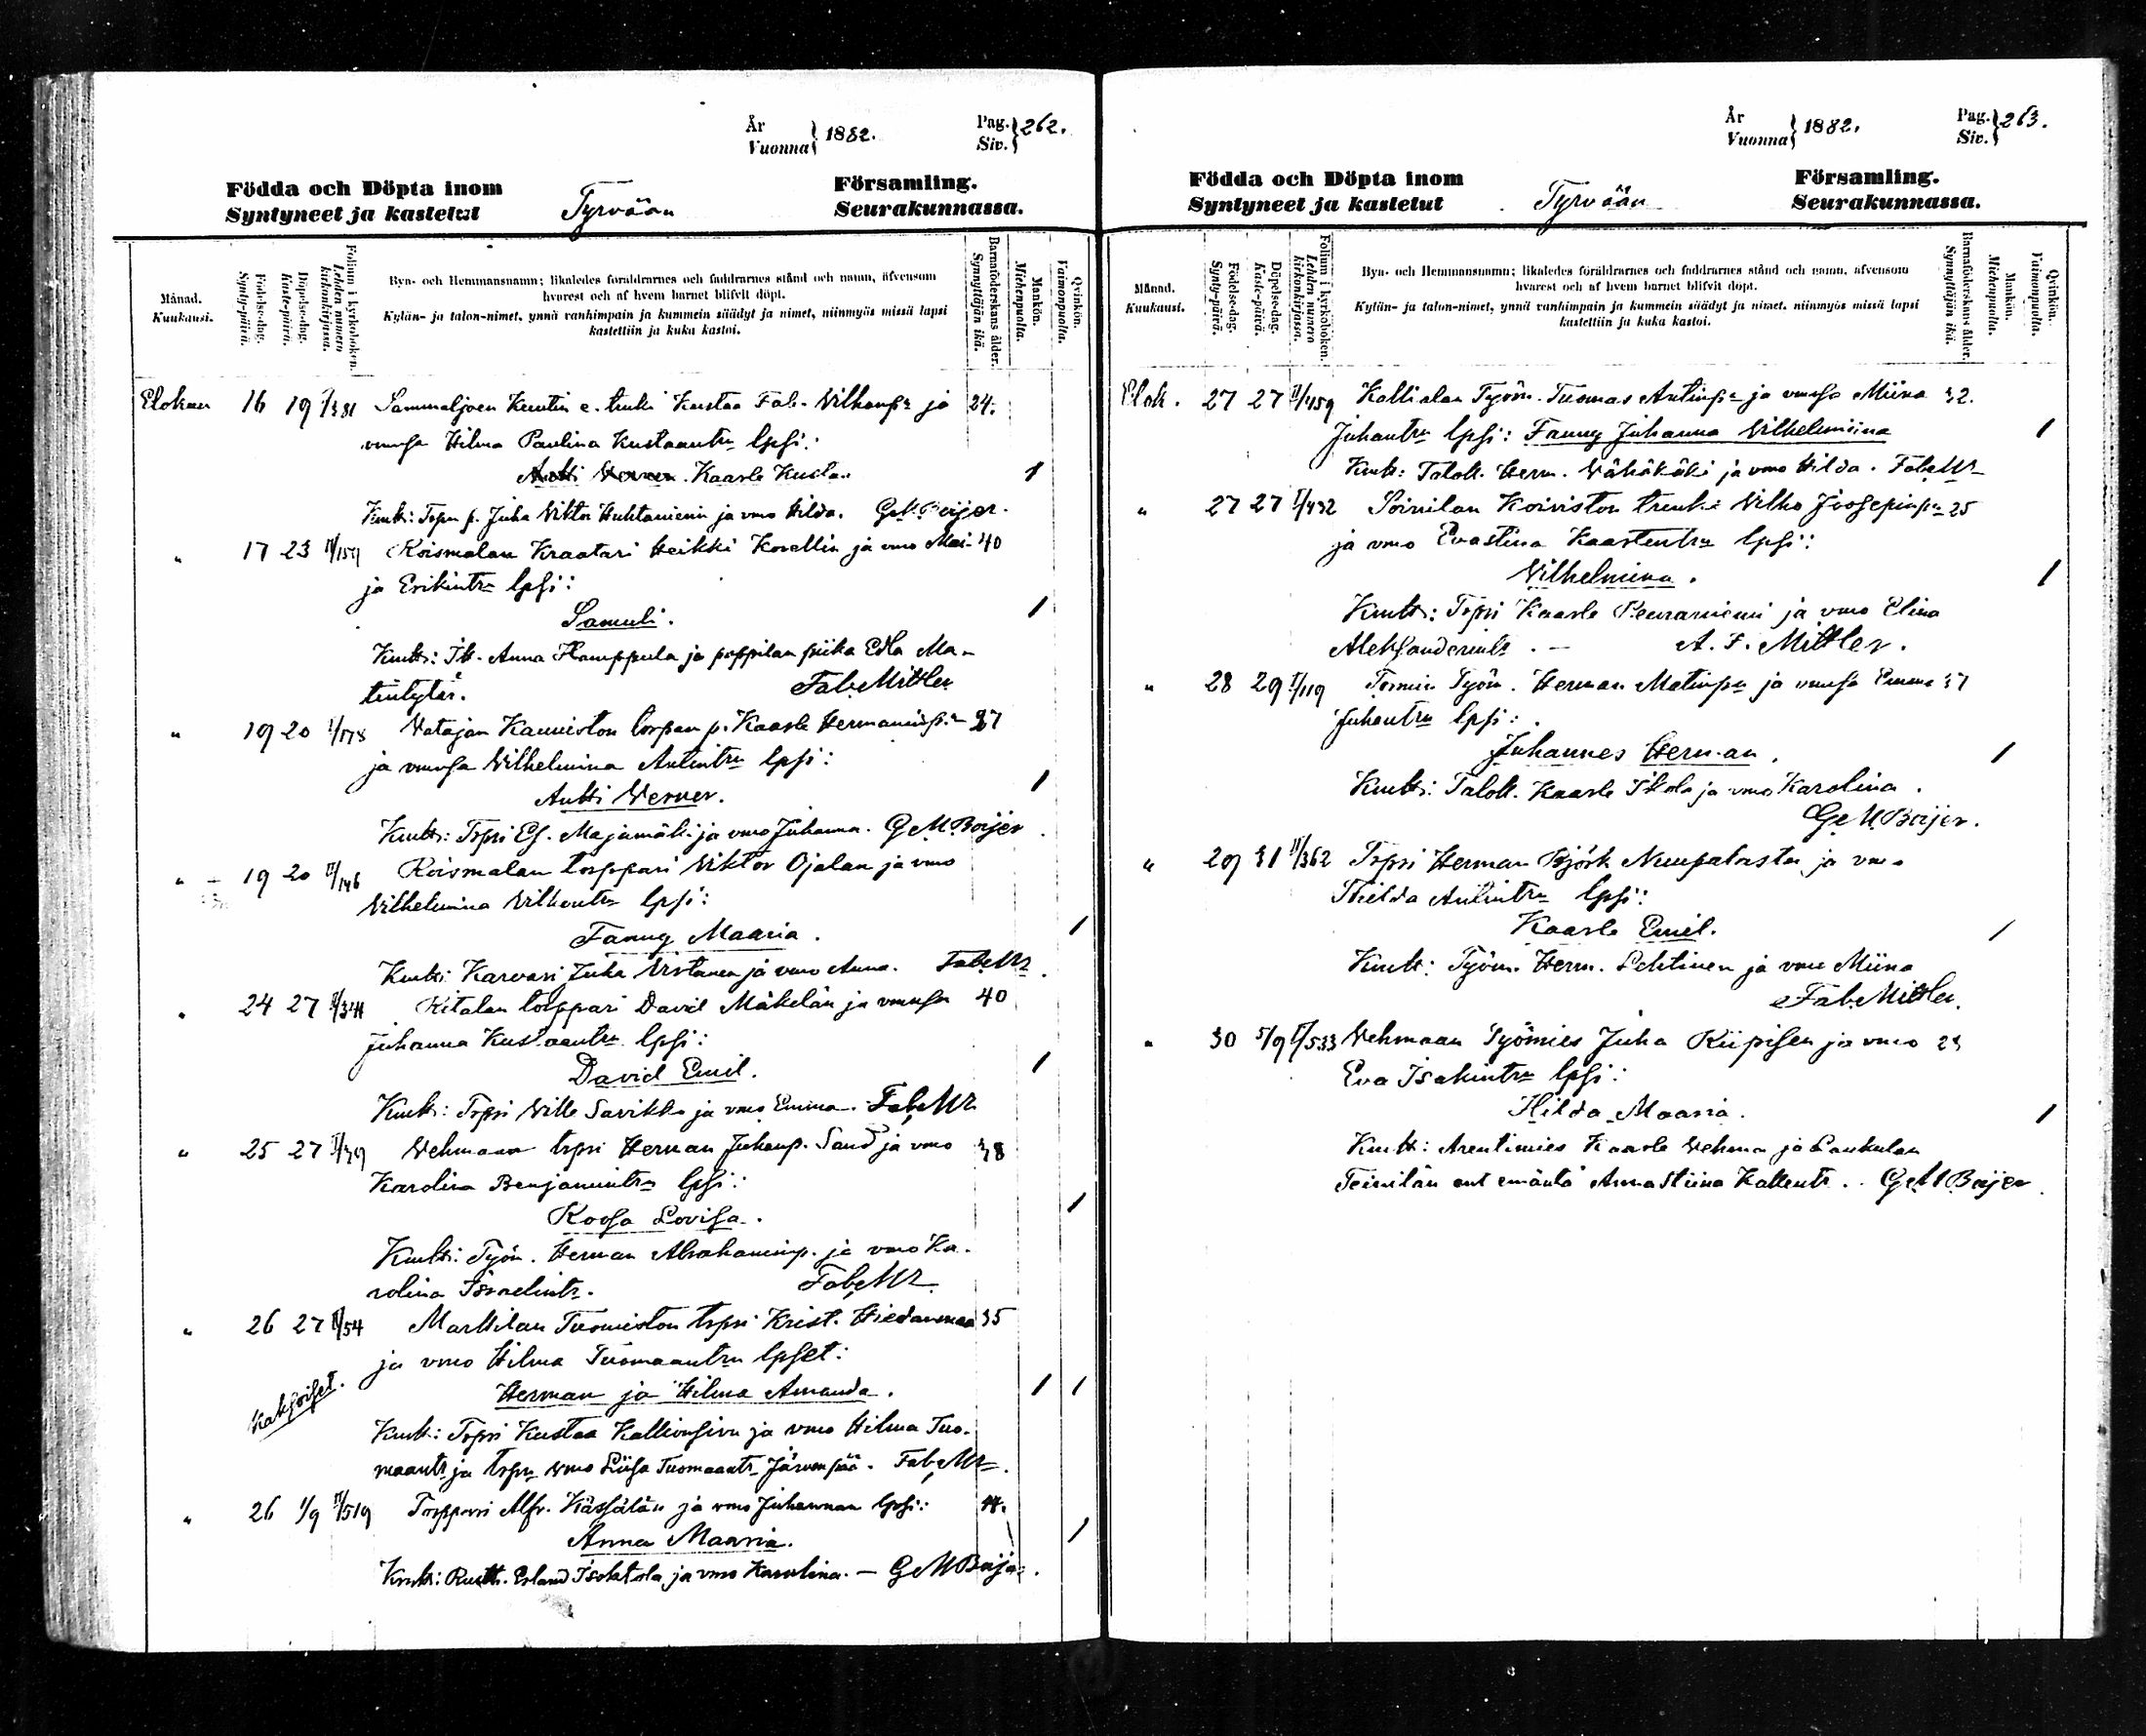 År
Vuonna } 1882.
Pag.
Siv. } 262.
Födda och Döpta inom
Syntyneet ja kastetut
Tyrvään
Församling.
Seurakunnassa.
Månad.
Kuukausi.
Födelsedag.
Synty-päivä.
Döpelsedag.
Kaste-päivä.
Folium i kyrkoboken.
Lehden numero kirkonkirjassa.
Byn- och Hemmansnamn; likaledes föräldrarnes och faddrarnes stånd och namn, äfvensom
hvarest och af hvem barnet blifvit döpt.
Kylän- ja talon-nimet, ynnä vanhimpain ja kummein säädyt ja nimet, niinmyös missä lapsi
kastettiin ja kuka kastoi.
Barnaföderskans ålder.
Synnyttäjän ikä.
Mankön.
Miehenpuolta.
Qvinkön.
Vaimonpuolta.
Elokuu 16 19 I/381 Sammaljoen Knutin e. truki Kustaa Fab. Vilhonp:a ja 24.
vmonsa Hilma Paulina Kustaantr:n lpsi:
Antti Verner. Kaarle Kustaa 1
Kmtt: Torpn p. Juha Viktor Huhtaniemi ja vmo Hilda. G. M. Boijer.
" 17 23 II/159 Roismalan Kraatari Heikki Korellin ja vmo Mai- 40
ja Erikintr:n lpsi:
Samuli. 1
Kmtt: Itt. Anna Hamppula ja pappilan piika Edla Ma-
tintytär. Fab. Mittler
" 19 20 I/178 Vatajan Kanniston torpan p. Kaarle Hermaninp:a 27
ja vmonsa Vilhelmina Antintr:n lpsi:
Antti Verner. 1
Kmtt: Trpri Ef. Majamäki ja vmo Juhanna. G. M. Boijer
" 19 20 II/146 Roismalan torppari Viktor Ojalan ja vmo
Vilhelmina Vilhontr:n lpsi:
Fanny Maaria. 1
Kmtt: Karvari Juha Virtanen ja vmo Anna. Fab. Mr
" 24 27 II/344 Ritalan torppari David Mäkelän ja vmonsa 40
Juhanna Kustaantr:n lpsi:
David Emil. 1
Kmtt: Trpri Ville Savikko ja vmo Emma. Fab. Mr
" 25 27 II/39 Vehmaan trpri Herman Juhanp. Sand ja vmo 38
Karolina Benjamintr:n lpsi:
Roosa Lovisa. 1
Kmtt: Työm. Herman Abrahaminp. ja vmo Ka-
rolina Israelintr. Fab. Mr
" 26 27 II/54 Marttilan Tuomiston trpri Krist. Hiedanmaa 35
ja vmo Hilma Tuomaantr:n lpset:
Kaksoiset.
Herman ja Hilma Amanda. 1 1
Kmtt: Trpri Kustaa Kallionsivu ja vmo Hilma Tuo-
maantr ja trpn vmo Liisa Tuomaantr Järvenpää. Fab. Mr
" 26 1/9 II/519 Torppari Alfr. Hässälän ja vmo Juhannan lpsi: 44.
Anna Maaria. 1
Kmtt: Rustt. Erland Isotalola ja vmo Karolina. — G. M. Boijer.
År
Vuonna } 1882.
Pag.
Siv. } 263.
Födda och Döpta inom
Syntyneet ja kastetut
Tyrvään
Församling.
Seurakunnassa.
Månad.
Kuukausi.
Födelsedag.
Synty-päivä.
Döpelsedag.
Kaste-päivä.
Folium i kyrkoboken.
Lehden numero kirkonkirjassa.
Byn- och Hemmansnamn; likaledes föräldrarnes och faddrarnes stånd och namn, äfvensom
hvarest och af hvem barnet blifvit döpt.
Kylän- ja talon-nimet, ynnä vanhimpain ja kummein säädyt ja nimet, niinmyös missä lapsi
kastettiin ja kuka kastoi.
Barnaföderskans ålder.
Synnyttäjän ikä.
Mankön.
Miehenpuolta.
Qvinkön.
Vaimonpuolta.
Elok. 27 27 II/459 Kallialan Työm. Tuomas Antinp:a ja vmonsa Miina 32.
Juhantr:n lpsi: Fanny Juhanna Vilhelmiina 1
Kmtt: Talok. Herm. Vähäkäki ja vmo Hilda. Fab. Mr
" 27 27 I/432 Soinilan Koiviston trenki Vilho Joosepinp:n 25
ja vmo Evastina Kaarlentr:n lpsi:
Vilhelmina. 1
Kmtt: Trpri Kaarle Peuraniemi ja vmo Elina
Aleksanderintr. — A. F. Mittler.
" 28 29 I/119 Tomin Työm. Herman Matinp:n ja vmonsa Emma 37
Juhantr:n lpsi:
Juhannes Herman. 1
Kmtt: Talok. Kaarle Ikola ja vmo Karolina.
G. M. Boijer.
" 29 31 II/362 Trpri Herman Björk Nuupalasta ja vmo
Hilda Antintr:n lpsi:
Kaarle Emil. 1
Kmtt: Työm. Herm. Lehtinen ja vmo Miina
Fab. Mittler.
" 30 5/9 I/533 Vehmaan Työmies Juha Kiipisen ja vmo 23
Eva Isakintr:n lpsi:
Hilda Maaria. 1
Kmtt: Arentimies Kaarle Vehma ja Laukulan
Teinilän ent emäntä Annastiina Kallentr. G. M. Boijer